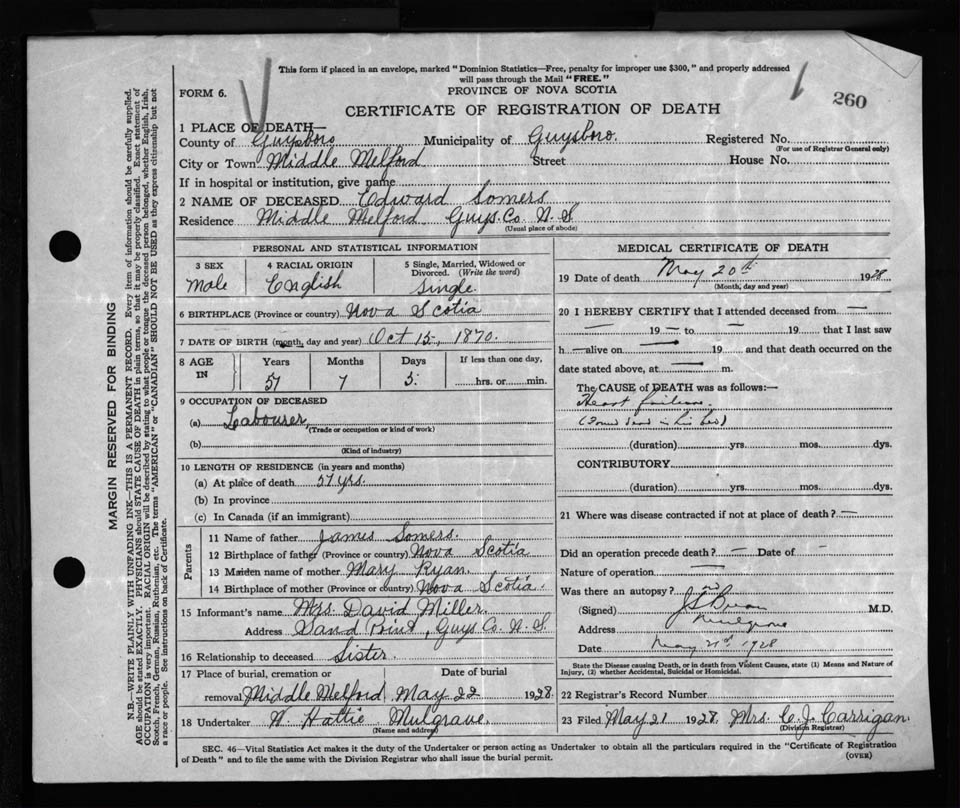 This form if placed in an envelope, marked "Dominion Statistics—Free, penalty for improper use $300," and properly addressed
will pass through the Mail "FREE."
FORM 6.
PROVINCE OF NOVA SCOTIA
260
CERTIFICATE OF REGISTRATION OF DEATH
1 PLACE OF DEATH—
County of Guysboro Municipality of Guysboro. Registered No.
(For use of Registrar General only)
City or Town Middle Melford Street House No.
If in hospital or institution, give name
2 NAME OF DECEASED Edward Somers
Residence Middle Melford Guys. Co. N. S
(Usual place of abode)
PERSONAL AND STATISTICAL INFORMATION
3 SEX 4 RACIAL ORIGIN 5 Single, Married, Widowed or
Divorced. (Write the word)
male English Single.
6 BIRTHPLACE (Province or country) Nova Scotia
7 DATE OF BIRTH (month, day and year) Oct 15, 1870.
8 AGE IN Years Months Days If less than one day,
57 7 5. hrs. or min.
9 OCCUPATION OF DECEASED
(a) Labourer
(Trade or occupation or kind of work)
(b)
(Kind of industry)
10 LENGTH OF RESIDENCE (in years and months)
(a) At place of death 57 yrs.
(b) In province
(c) In Canada (if an immigrant)
Parents
11 Name of father James Somers.
12 Birthplace of father (Province or country) Nova Scotia
13 Maiden name of mother Mary Ryan.
14 Birthplace of mother (Province or country) Nova Scotia.
15 Informant's name Mrs. David Miller.
Address Sand Point, Guys Co. N. S
16 Relationship to deceased Sister.
17 Place of burial, cremation or Date of burial
removal Middle Melford May 22 1928.
18 Undertaker W. Hattie Mulgrave.
(Name and address)
MEDICAL CERTIFICATE OF DEATH
19 Date of death May 20th 1928
(Month, day and year)
20 I HEREBY CERTIFY that I attended deceased from —
— 19 — to — 19 that I last saw
h — alive on — 19 and that death occurred on the
date stated above, at — m.
The CAUSE of DEATH was as follows:—
Heart failure.
(Found dead in his bed)
(duration) yrs. mos. dys.
CONTRIBUTORY
(duration) yrs. mos. dys.
21 Where was disease contracted if not at place of death? —
Did an operation precede death? — Date of -
Nature of operation —
Was there an autopsy? no
(Signed) M.D.
Address Mulgrave
Date May 21st 1928
State the Disease causing Death, or in death from Violent Causes, state (1) Means and Nature of
Injury, (2) whether Accidental, Suicidal or Homicidal.
22 Registrar's Record Number
23 Filed May 21 1928. Mrs. C. J. Carrigan.
(Division Registrar)
SEC. 46—Vital Statistics Act makes it the duty of the Undertaker or person acting as Undertaker to obtain all the particulars required in the "Certificate of Registration
of Death" and to file the same with the Division Registrar who shall issue the burial permit.
(OVER)
MARGIN RESERVED FOR BINDING
N.B.—WRITE PLAINLY WITH UNFADING INK—THIS IS A PERMANENT RECORD. Every item of information should be carefully supplied.
AGE should be stated EXACTLY. PHYSICIANS should STATE CAUSE OF DEATH in plain terms, so that it may be properly classified. Exact statement of
OCCUPATION is very important. RACIAL ORIGIN will be described by stating to what people or tongue the deceased person belonged, whether English, Irish,
Scotch, French, German, Russian, Ruthenian, etc. The terms "AMERICAN" or "CANADIAN" SHOULD NOT BE USED as they express citizenship but not
a race or people. See instructions on back of Certificate.